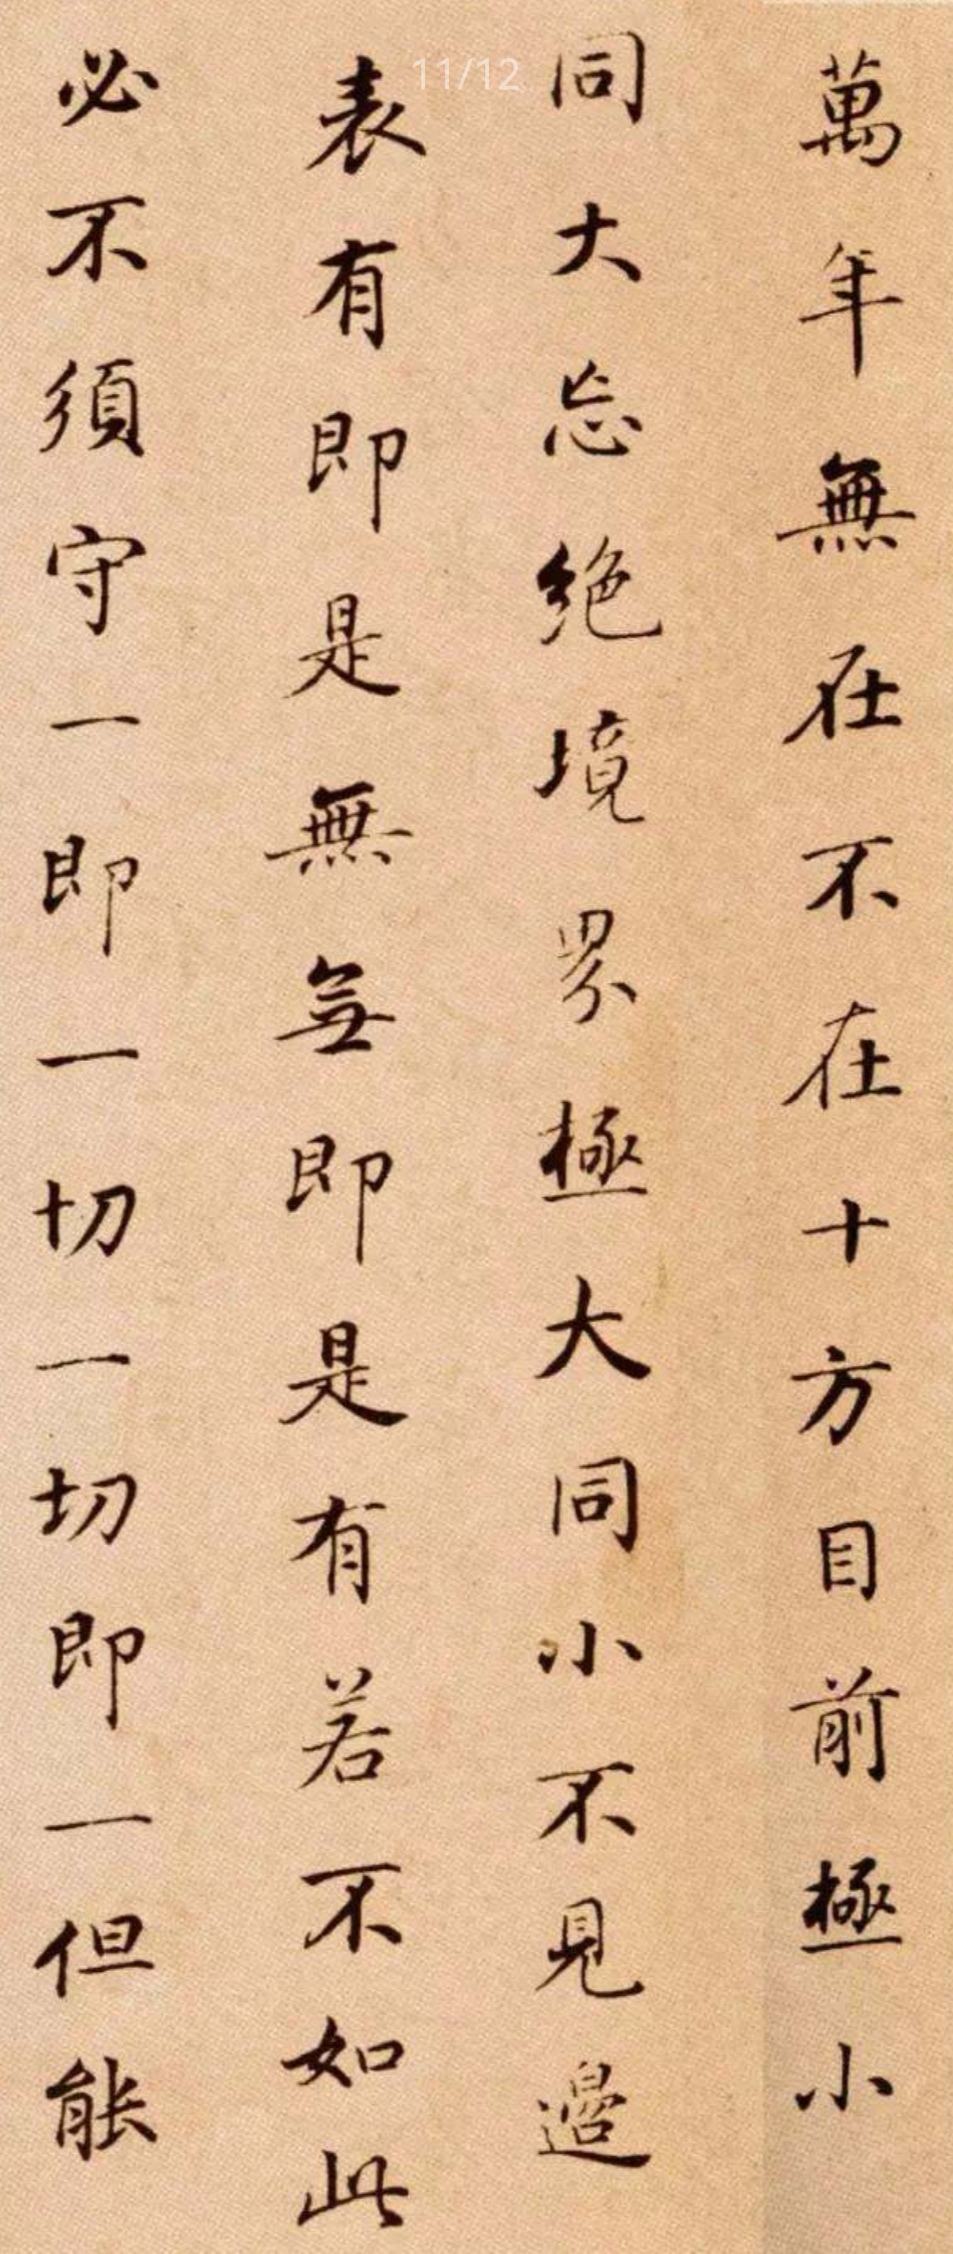 萬年無在不在十方目前極小
同大忘絶境界極大同小不見邊
表有即是無無即是有若不如此
必不須守一即一切一切即一但能
11/12